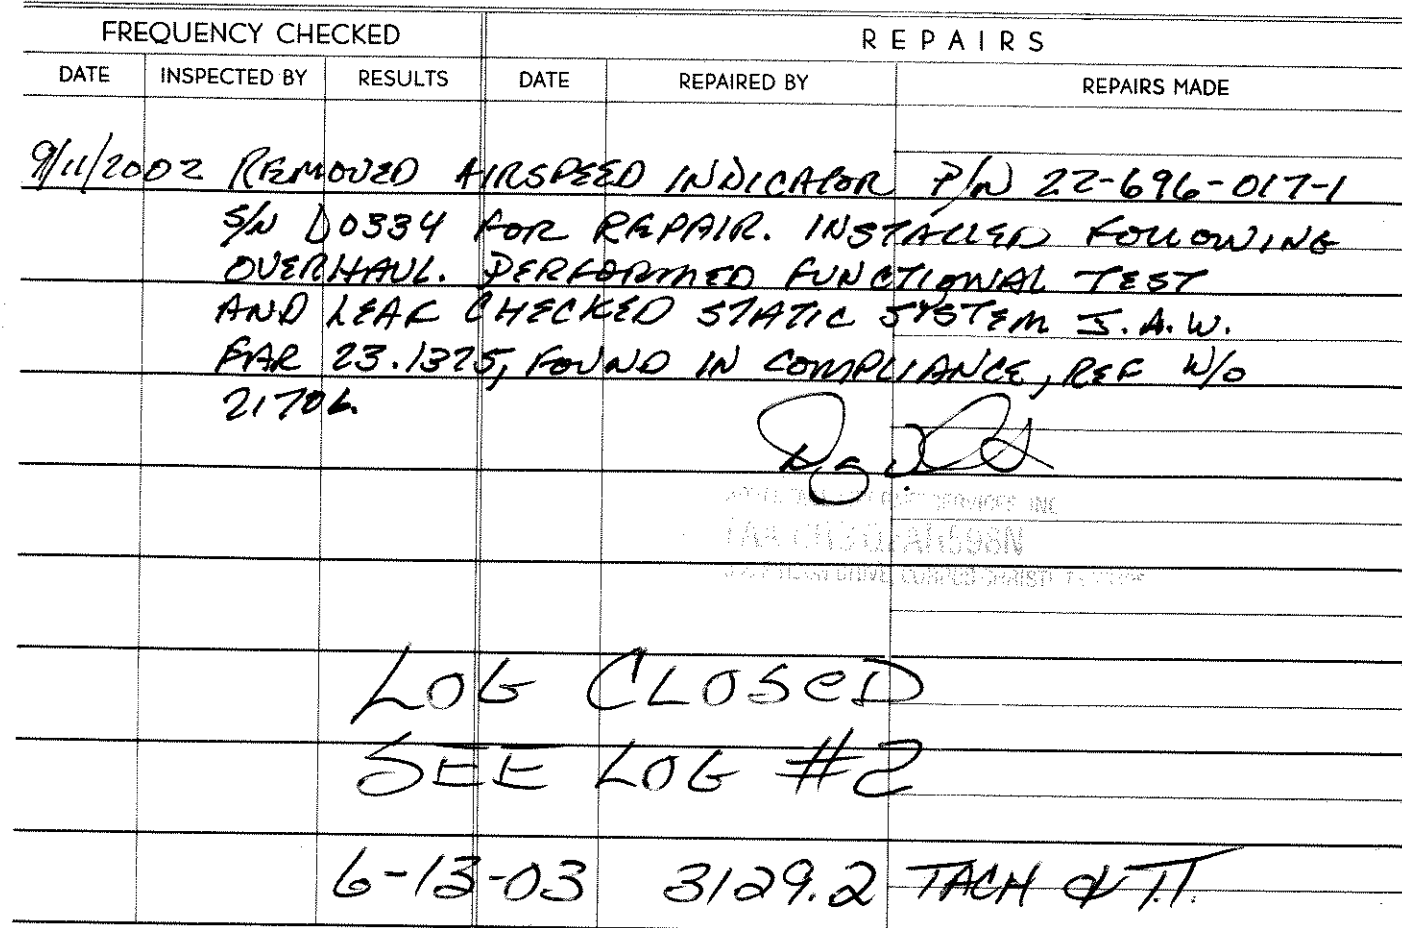 FREQUENCY CHECKED REPAIRS
DATE INSPECTED BY RESULTS DATE REPAIRED BY REPAIRS MADE
9/11/2002 REMOVED AIRSPEED INDICATOR P/N 22-696-017-1
S/N D0334 FOR REPAIR. INSTALLED FOLLOWING
OVERHAUL. PERFORMED FUNCTIONAL TEST
AND LEAK CHECKED STATIC SYSTEM I.A.W.
FAR 23.1325, FOUND IN COMPLIANCE, REF W/O
SERVICES INC
DRIVE, CORPUS CHRISTI
LOG CLOSED
SEE LOG #2
6-13-03 3129.2 TACH & T.T.